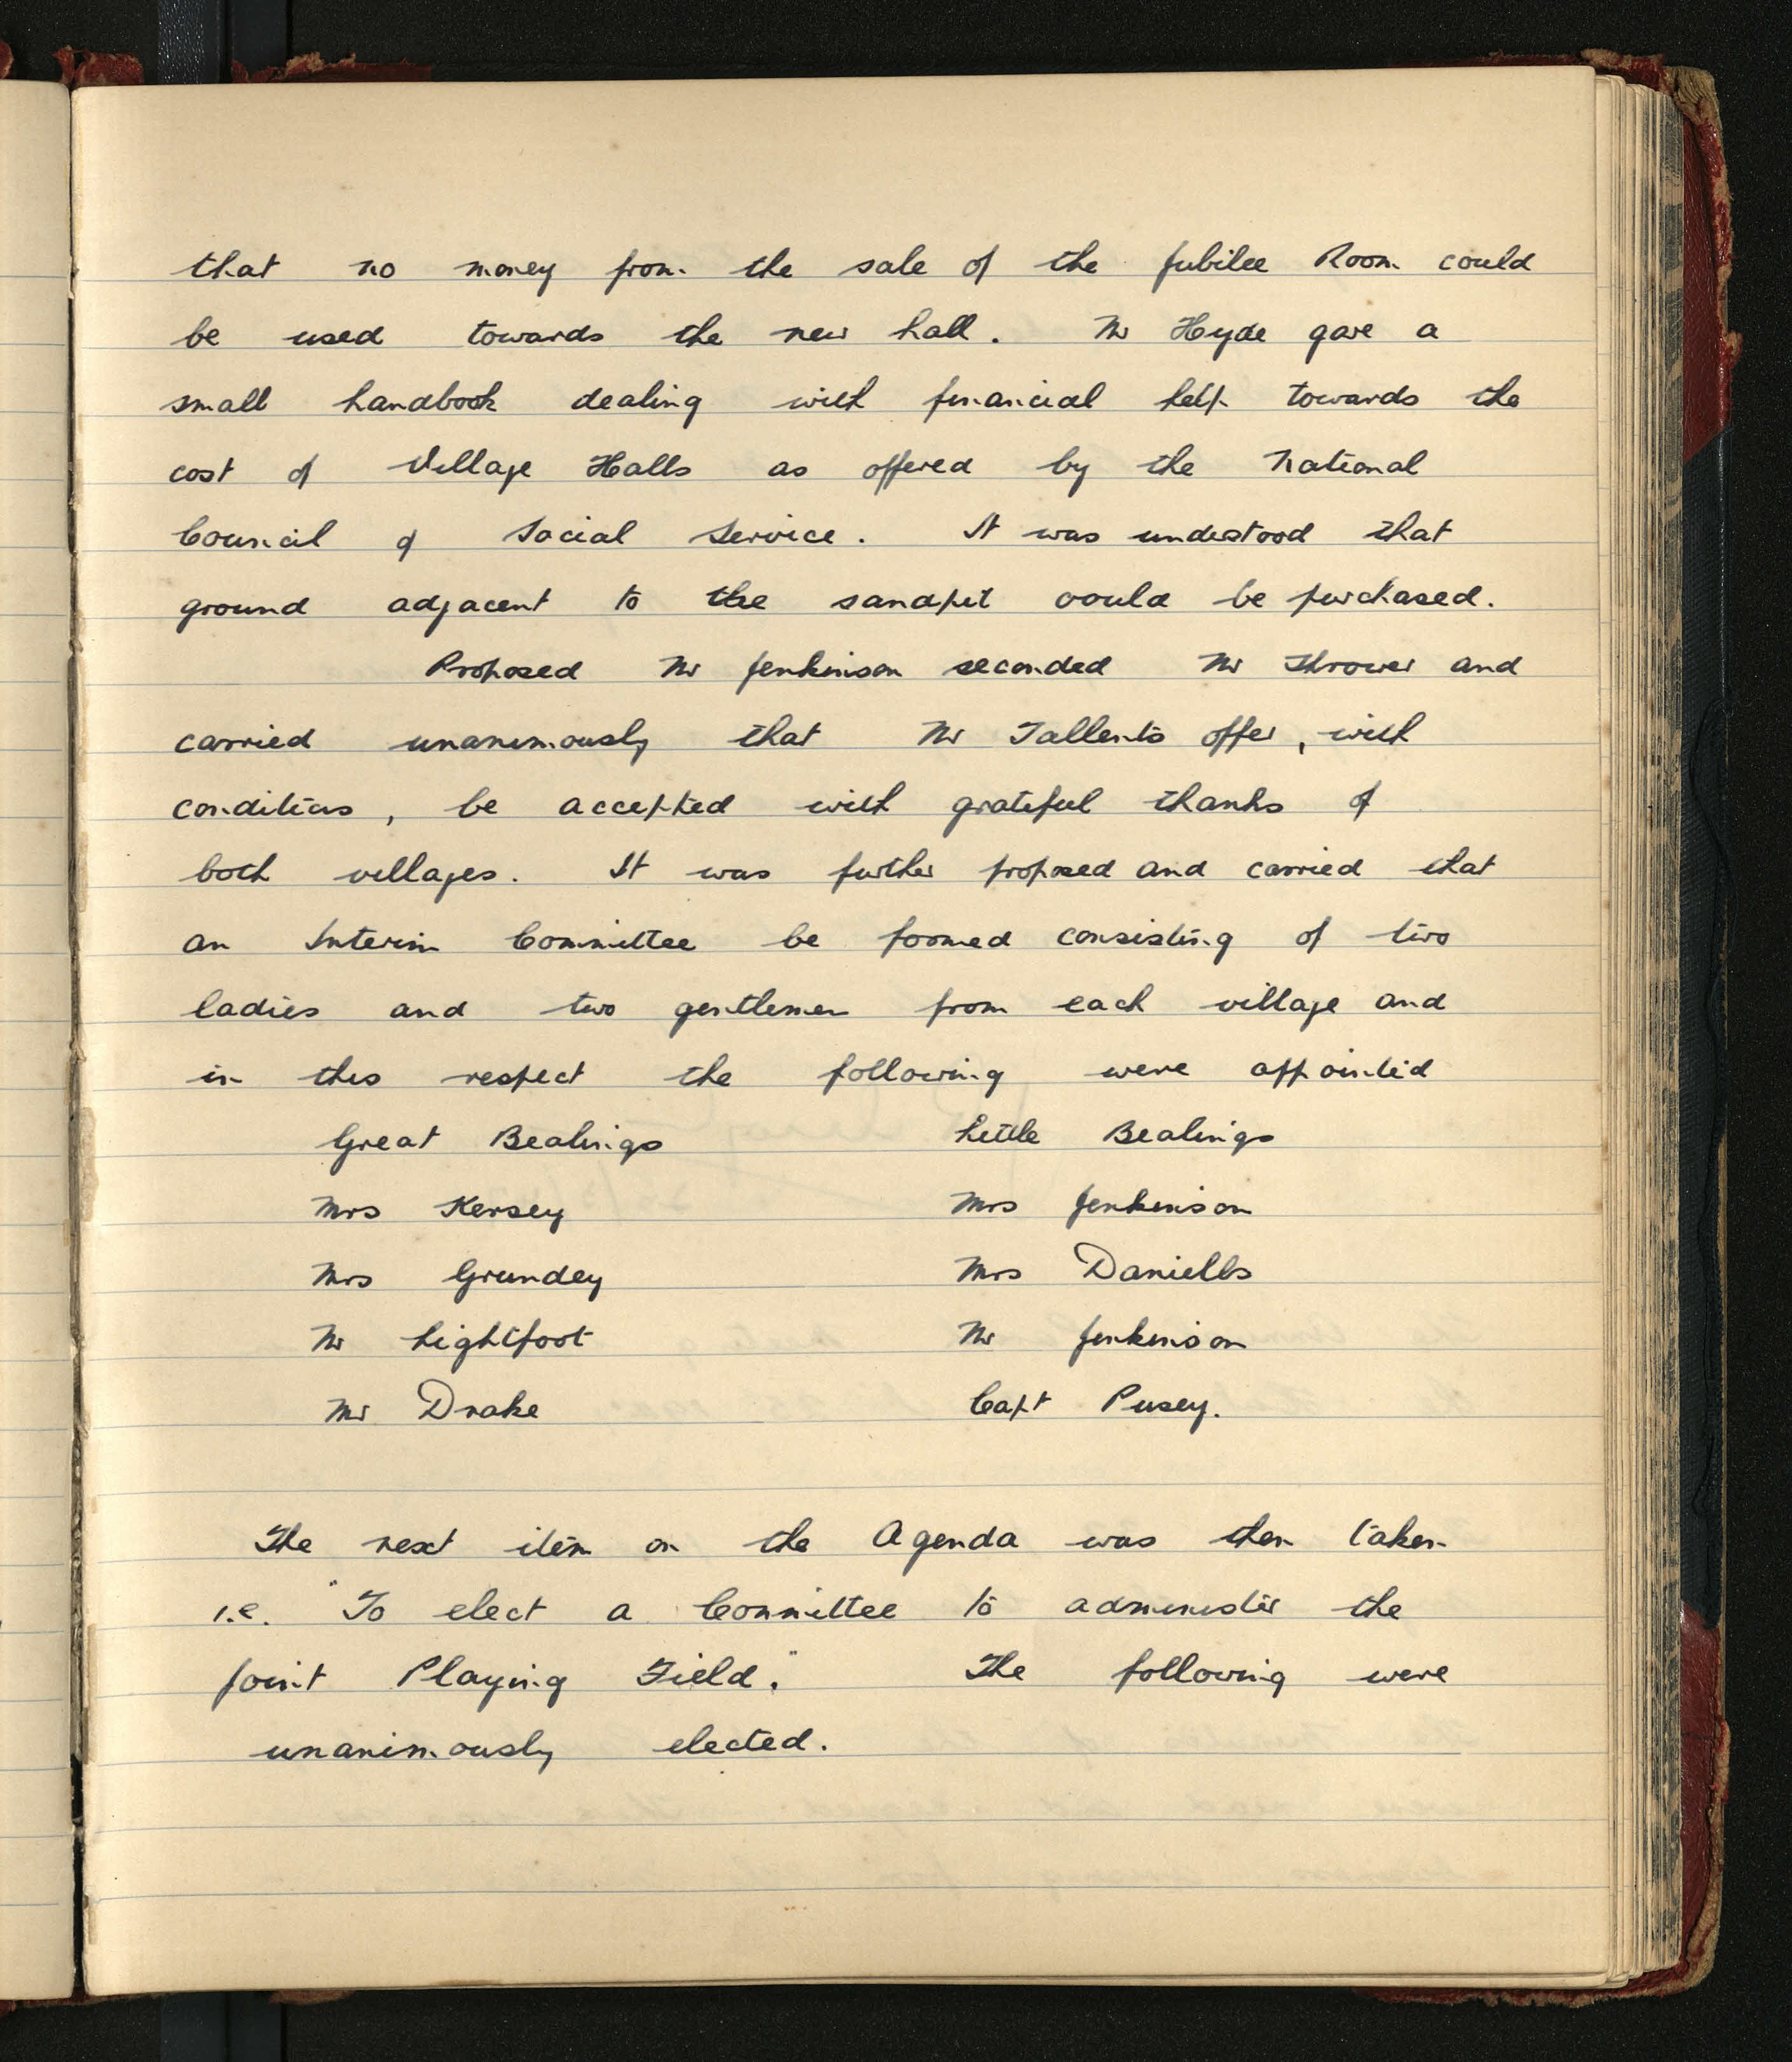 that no money from the sale of the Jubilee Room could
be used towards the new hall. Mr Hyde gave a
small handbook dealing with financial help towards the
cost of Village Halls as offered by the National
Council of Social Service. It was understood that
ground adjacent to the sandpit could be purchased.
Proposed Mr Jenkinson seconded Mr Thrower and
carried unanimously that Mr Tallents offer, with
conditions, be accepted with grateful thanks of
both villages. It was further proposed and carried that
an Interim Committee be formed consisting of two
ladies and two gentlemen from each village and
in this respect the following were appointed
Great Bealings Little Bealings
Mrs Kersey Mrs Jenkinson
Mrs Grundey Mrs Daniells
Mr Lightfoot Mr Jenkinson
Mr Drake Capt Pusey.
The next item on the Agenda was then taken
i.e. "To elect a Committee to administer the
Joint Playing Field." The following were
unanimously elected.